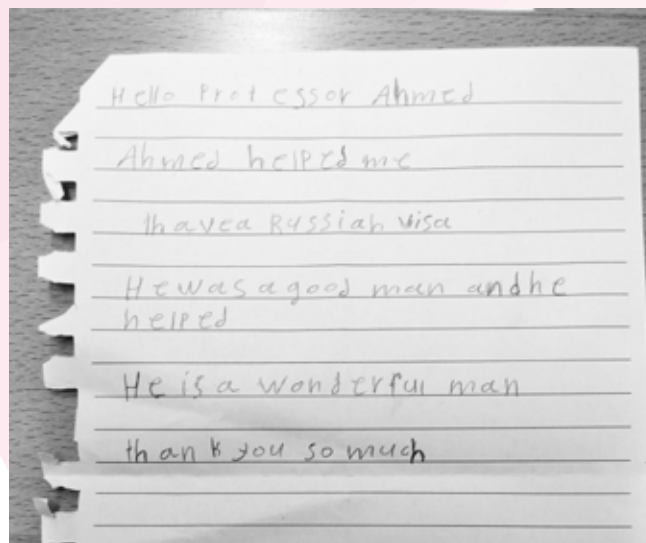 Hello Professor Ahmed
Ahmed helped me
Ihavea Russian visa
Hewas a good man and he
helped
He is a wonderful man
thank you so much